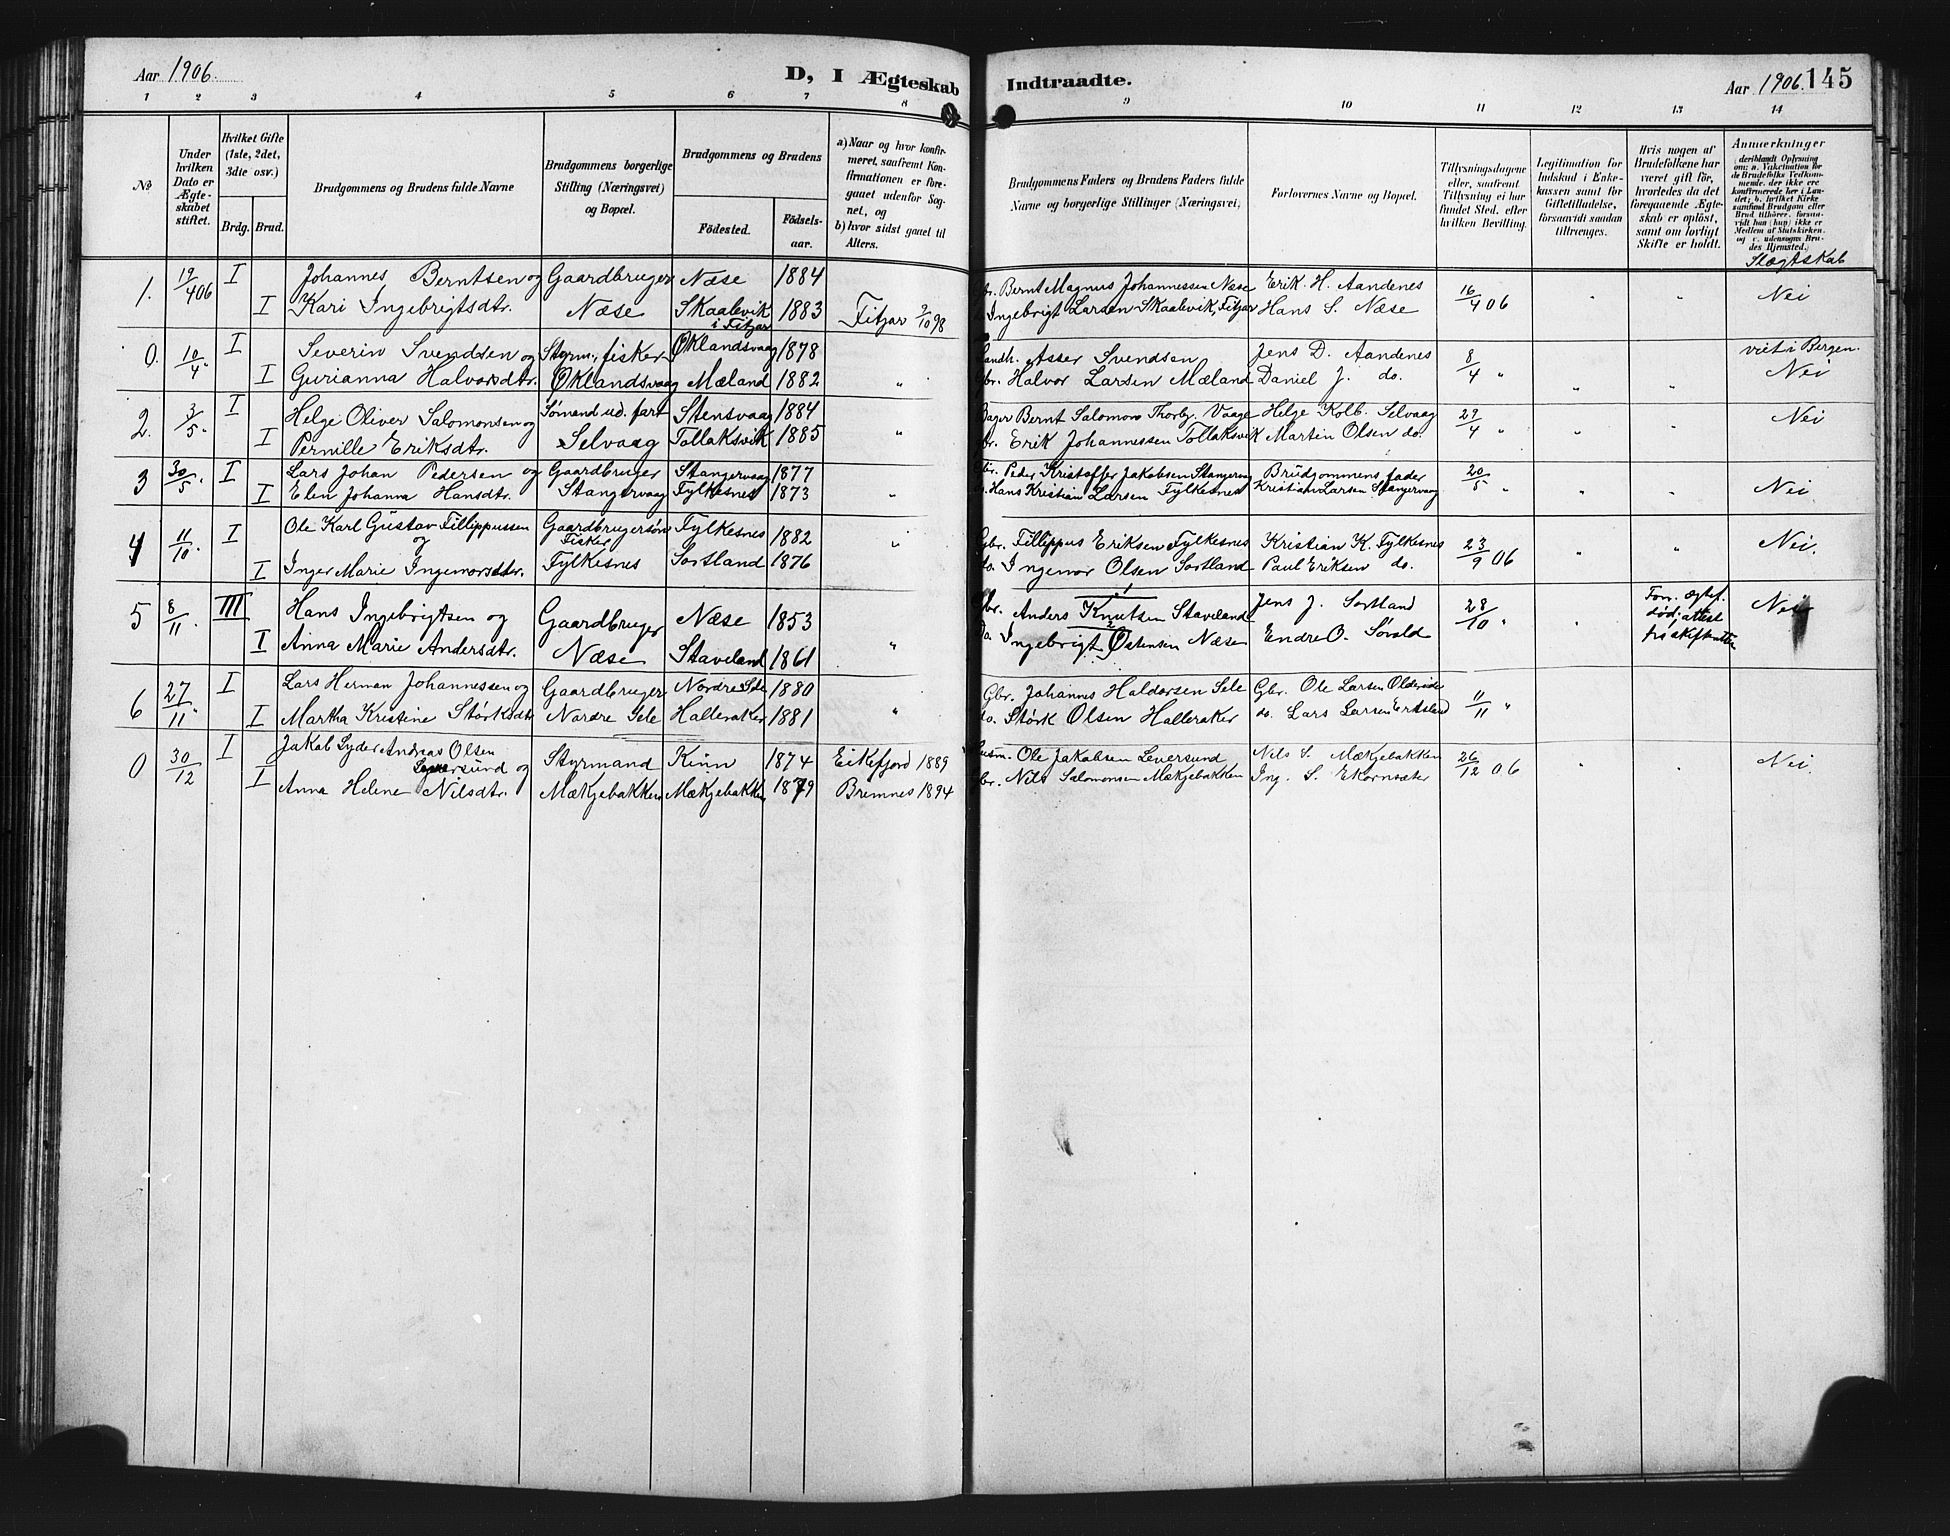 Aar 1906.
D, I Ægteskab Indtraadte.
Aar 1906. 145
1 2 3 4 5 6 7 8 9 10 11 12 13 14
No
Under hvilken Dato er Ægteskabet stiftet.
Hvilket Gifte (1ste, 2det, 3die osv.)
Brdg. Brud.
Brudgommens og Brudens fulde Navne
Brudgommens borgerlige Stilling (Næringsvei) og Bopæl.
Brudgommens og Brudens
Fødested.
Fødselsaar.
a) Naar og hvor konfirmeret, saafremt Konfirmationen er foregaaet udenfor Sognet, og
b) hvor sidst gaaet til Alters.
Brudgommens Faders og Brudens Faders fulde Navne og borgerlige Stillinger (Næringsvei)
Forlovernes Navne og Bopæl.
Tillysningsdagene eller, saafremt Tillysning ei har fundet Sted, efter hvilken Bevilling.
Legitimation for Indskud i Enkekassen samt for Giftetilladelse, forsaavidt saadan tiltrænges.
Hvis nogen af Brudefolkene har været gift før, hvorledes da det foregaaende Ægteskab er opløst, samt om lovligt Skifte er holdt.
Anmerkninger
Slægtskab
1. 19/4 06 I Johannes Berntsen og Gaardbruger Næse 1884 Gbr. Bernt Magnus Johannessen Næse Erik H. Aandenes 16/4 06 " " Nei
I Kari Ingebrigtsdtr. Næse Skaalevik i Fitjar 1883 Fitjar 2/10 98 Ingebrigt Larsen Skaalevik, Fitjar Hans S. Næse
0. 10/4 I Severin Svendsen og Styrm., fisker Øklandsvaag 1878 Landh. Asser Svendsen Jens D. Aandenes 8/4 " viet i Bergen.
I Gurianna Halvorsdtr. Øklandsvaag Mæland 1882 " Gbr. Halvor Larsen Mæland Daniel J. do. " " Nei
2. 3/5 I Helge Oliver Salomonsen og Sømand ud. fart Stensvaag 1884 Bager Bernt Salomons Thorbj. Vaage Helge Kolb. Selvaag 29/4 " Nei
I Pernille Eriksdtr. Selvaag Tollaksvik 1885 " Gbr. Erik Johannessen Tollaksvik Martin Olsen do. " "
3 30/5 I Lars Johan Pedersen og Gaardbruger Stangervaag 1877 Gbr. Peder Kristoffer Jakobsen Stangervag Brudgommens fader 20/5 "
I Elen Johanna Hansdtr. Stangervaag Fylkesnes 1873 " do. Hans Kristian Larsen Fylkesnes Kristian Larsen Stangervaag " " Nei
4 11/10 I Ole Karl Gustav Fillippussen Gaardbrugersøn Fylkesnes 1882 " Gbr. Fillippus Eriksen Fylkesnes Kristian K. Fylkesnes 23/9 06 " " Nei.
og Fisker
I Inger Marie Ingemorsdtr. Fylkesnes Sortland 1876 do. Ingemor Olsen Sortland Paul Eriksen do.
5 8/11 III Hans Ingebrigtsen og Gaardbruger Næse 1853 Gbr. Anders Knutsen Staveland Jens J. Sortland 28/10 " " Forr. ægtef. død, attest Nei
I Anna Marie Andersdtr. Næse Staveland 1861 " do. Ingebrigt Østensen Næse Endre O. Sørold
6 27/11 I Lars Herman Johannessen og Gaardbruger Nordre Sele 1880 Gbr. Johannes Haldorsen Sele Gbr. Ole Larsen 11/11 "
I Martha Kristine Størksdtr Nordre Sele Halleraker 1881 " do. Størk Olsen Halleraker do. Lars Larsen
0 30/12 I Jakob Lyder Andreas Olsen Leversund og Styrmand Kinn 1874 Eikefjord 1889 Husm. Ole Jakobsen Leversund Nils S. Mækjebakken 26/12 06 " " Nei.
I Anna Helene Nilsdtr. Mækjebakken Mækjebakken 1879 Bremnes 1894 Gbr. Nils Salomonsen Mækjebakken Ing. S. Ekornsæter